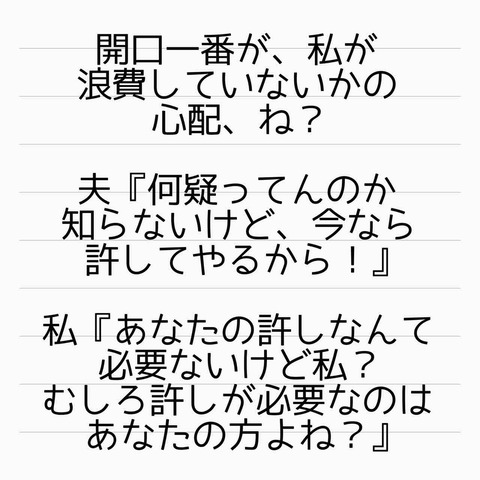 開口一番が、私が
浪費していないかの
心配、ね？
夫『何疑ってんのか
知らないけど、今なら
許してやるから！』
私『あなたの許しなんて
必要ないけど私？
むしろ許しが必要なのは
あなたの方よね？』